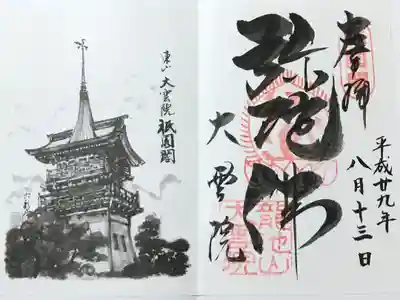 奉拝
平成廿九年
八月十三日
弥陀佛
大雲院
東山 大雲院 祇園閣
龍池山
大雲院